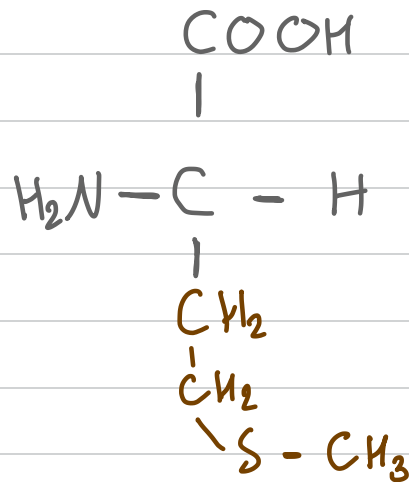 COOH
H₂N - C - H
CH₂
CH₂
S - CH₃